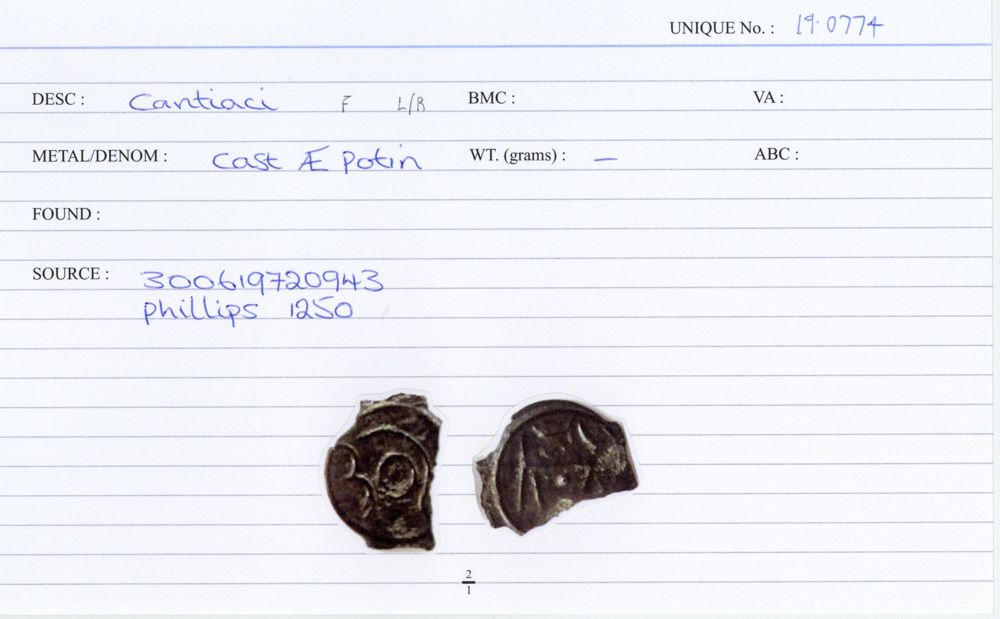 UNIQUE No. : 19.0774
DESC : Cantiaci F L/R BMC : VA :
METAL/DENOM : Cast Æ Potin WT. (grams) : — ABC :
FOUND :
SOURCE : 300619720943
Phillips 1250
2
1